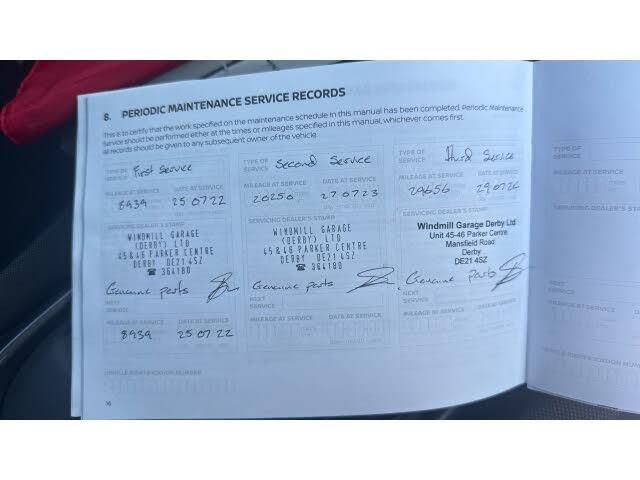 8. PERIODIC MAINTENANCE SERVICE RECORDS
This is to certify that the work specified on the maintenance schedule in this manual has been completed. Periodic Maintenance
Service should be performed either at the times or mileages specified in this manual, whichever comes first.
All records should be given to any subsequent owner of the vehicle.
TYPE OF SERVICE First Service
MILEAGE AT SERVICE DATE AT SERVICE
8939 25 07 22
SERVICING DEALER'S STAMP
WINDMILL GARAGE
(DERBY) LTD
45&46 PARKER CENTRE
DERBY DE21 4SZ
☎ 364180
Genuine parts
NEXT SERVICE
MILEAGE AT SERVICE DATE AT SERVICE
8939 25 07 22
VEHICLE IDENTIFICATION NUMBER
16
TYPE OF SERVICE Second Service
MILEAGE AT SERVICE DATE AT SERVICE
20250 27 07 23
SERVICING DEALER'S STAMP
WINDMILL GARAGE
(DERBY) LTD
45&46 PARKER CENTRE
DERBY DE21 4SZ
☎ 364180
Genuine parts
NEXT SERVICE
MILEAGE AT SERVICE DATE AT SERVICE
TYPE OF SERVICE third Service
MILEAGE AT SERVICE DATE AT SERVICE
29656 29 07 24
SERVICING DEALER'S STAMP
Windmill Garage Derby Ltd
Unit 45-46 Parker Centre
Mansfield Road
Derby
DE21 4SZ
Genuine parts
NEXT SERVICE
MILEAGE AT SERVICE DATE AT SERVICE
TYPE OF SERVICE
MILEAGE AT SERVICE
SERVICING DEALER'S
NEXT SERVICE
MILEAGE AT SERVICE